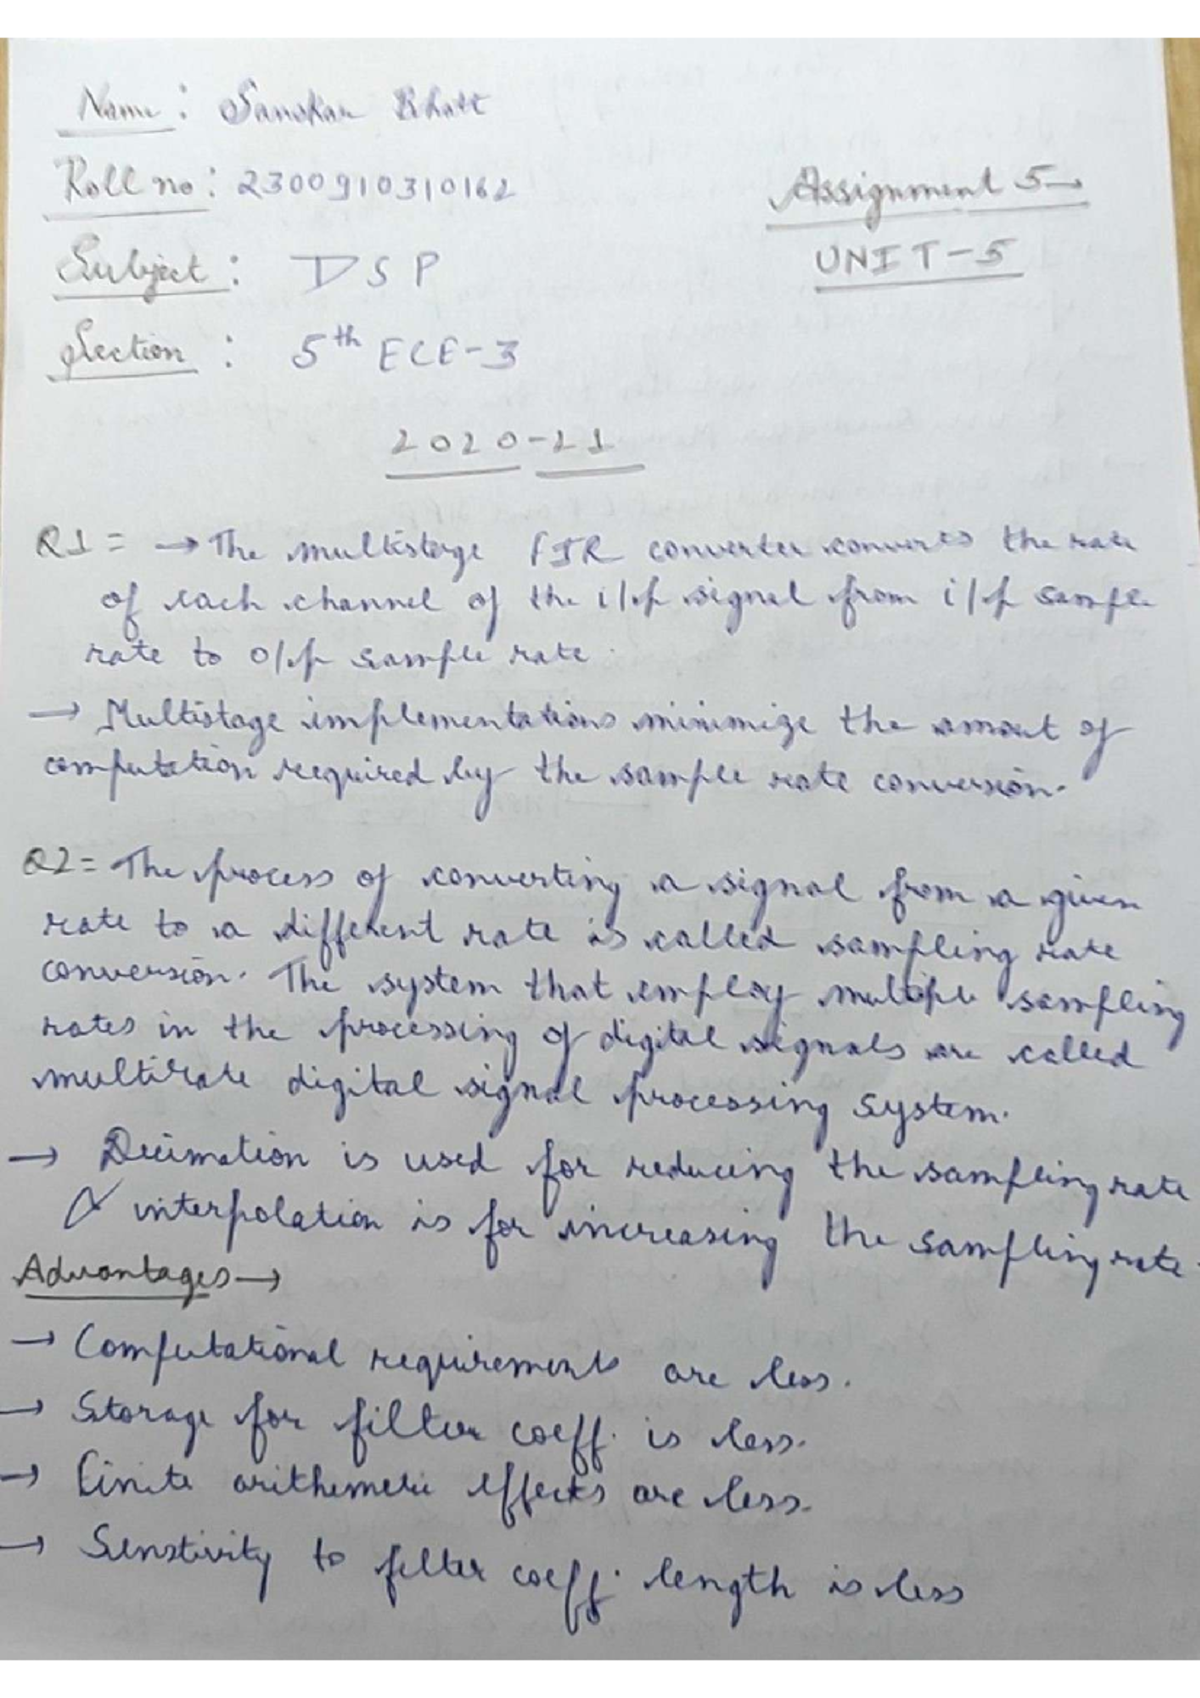 Name : Sanskar Bhatt
Roll no : 2300910310162
Assignment 5→
Subject : DSP
UNIT-5
Section : 5th ECE-3
2020-21
Q1 = → The multistage FIR converter converts the rate
of each channel of the i/p signal from i/p sample
rate to o/p sample rate.
→ Multistage implementations minimize the amout of
computation required by the sample rate conversion.
Q2 = The process of converting a signal from a given
rate to a different rate is called sampling rate
conversion. The system that employ multiple sampling
rates in the processing of digital signals are called
multirate digital signal processing system.
→ Decimation is used for reducing the sampling rate
& interpolation is for increasing the sampling rate.
Advantages→
→ Computational requirements are less.
→ Storage for filter coeff. is less.
→ Finite arithemetic effects are less.
→ Senstivity to filter coeff. length is less